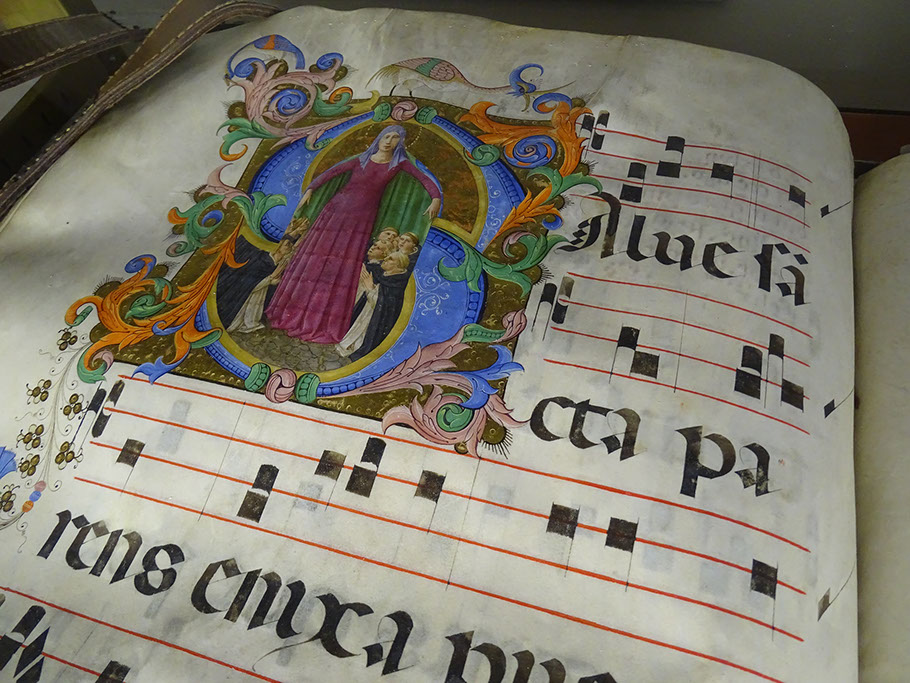 SAlue sã
cta pa
rens enixa pue